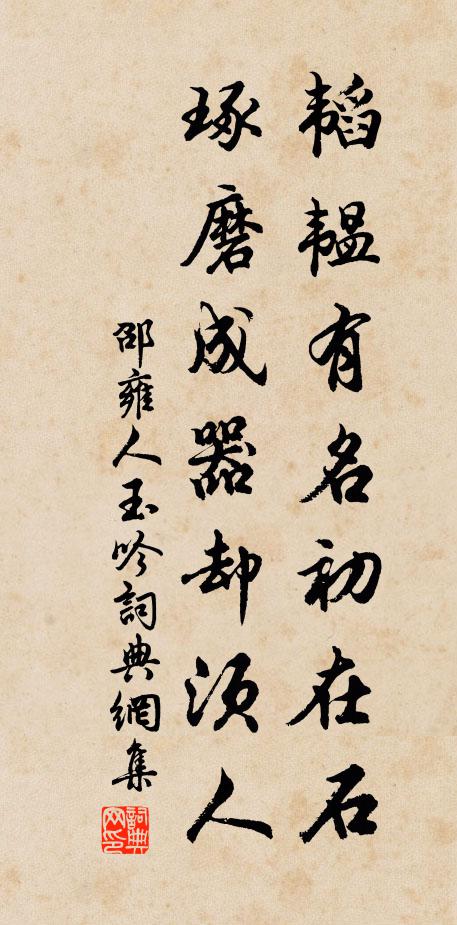 韜韞有名初在石
琢磨成器却須人
邵雍人玉吟詞典網集
詞典網印